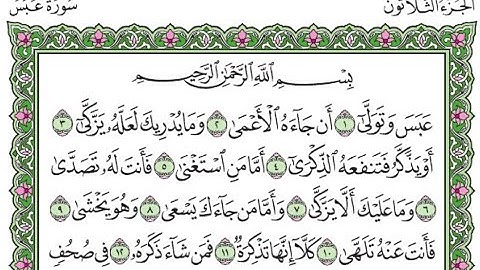 سُورَةُ عَبَسَ الجُزْءُ الثَّلَاثُونَ
بِسْمِ ٱللَّهِ ٱلرَّحْمَٰنِ ٱلرَّحِيمِ
عَبَسَ وَتَوَلَّىٰٓ ١ أَن جَآءَهُ ٱلْأَعْمَىٰ ٢ وَمَا يُدْرِيكَ لَعَلَّهُۥ يَزَّكَّىٰٓ ٣
أَوْ يَذَّكَّرُ فَتَنفَعَهُ ٱلذِّكْرَىٰٓ ٤ أَمَّا مَنِ ٱسْتَغْنَىٰ ٥ فَأَنتَ لَهُۥ تَصَدَّىٰ
٦ وَمَا عَلَيْكَ أَلَّا يَزَّكَّىٰ ٧ وَأَمَّا مَن جَآءَكَ يَسْعَىٰ ٨ وَهُوَ يَخْشَىٰ ٩
فَأَنتَ عَنْهُ تَلَهَّىٰ ١٠ كَلَّآ إِنَّهَا تَذْكِرَةٌ ١١ فَمَن شَآءَ ذَكَرَهُۥ ١٢ فِى صُحُفٍ